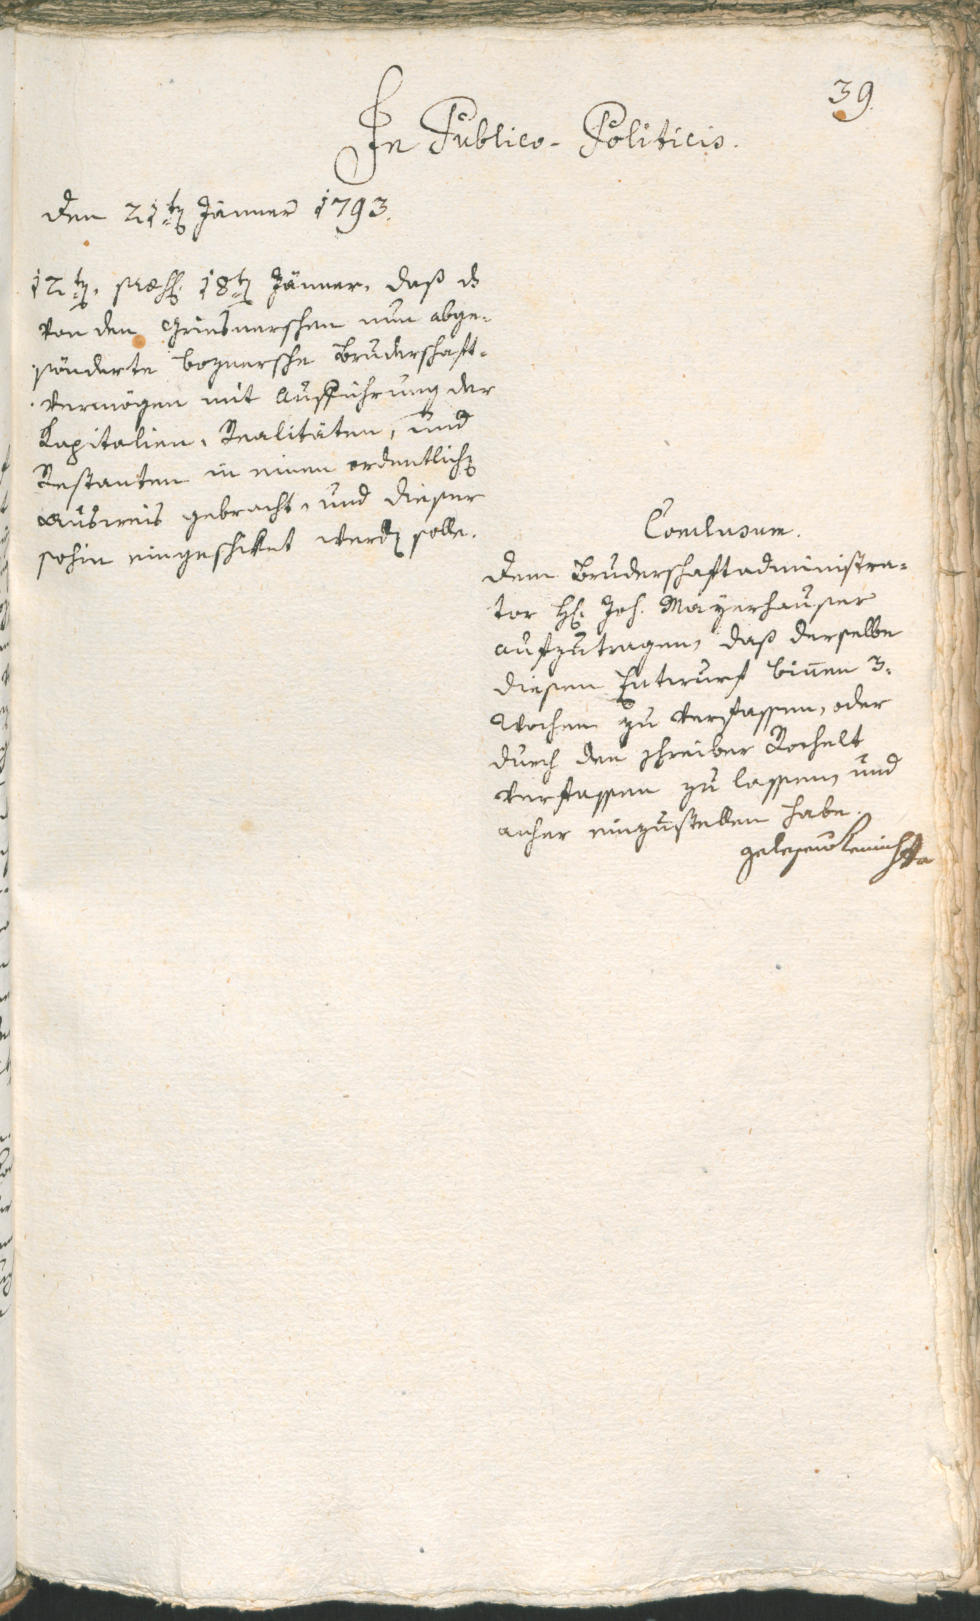 39.
In Publico-Politicis.
den 21ten Jänner 1793.
12ten, 18ten Jänner, daß ds
von den Griesnerschen nun abge-
sönderte boznersche Bruderschaft-
vermögen mit Ausführung der
Kapitalien, Realitäten, und
Restanten in einen ordentlichen
Ausweis gebracht, und dieser
sohin eingeschikt werden solle.
Conclusum.
dem Bruderschaftadministra-
tor H: Joh. Mayrhauser
aufzutragen, daß derselbe
diesen Entwurf binnen 3.
Wochen zu verfassen, oder
durch den schreiber Rochelt
verfassen zu lassen, und
anher einzustellen habe.
gelesen